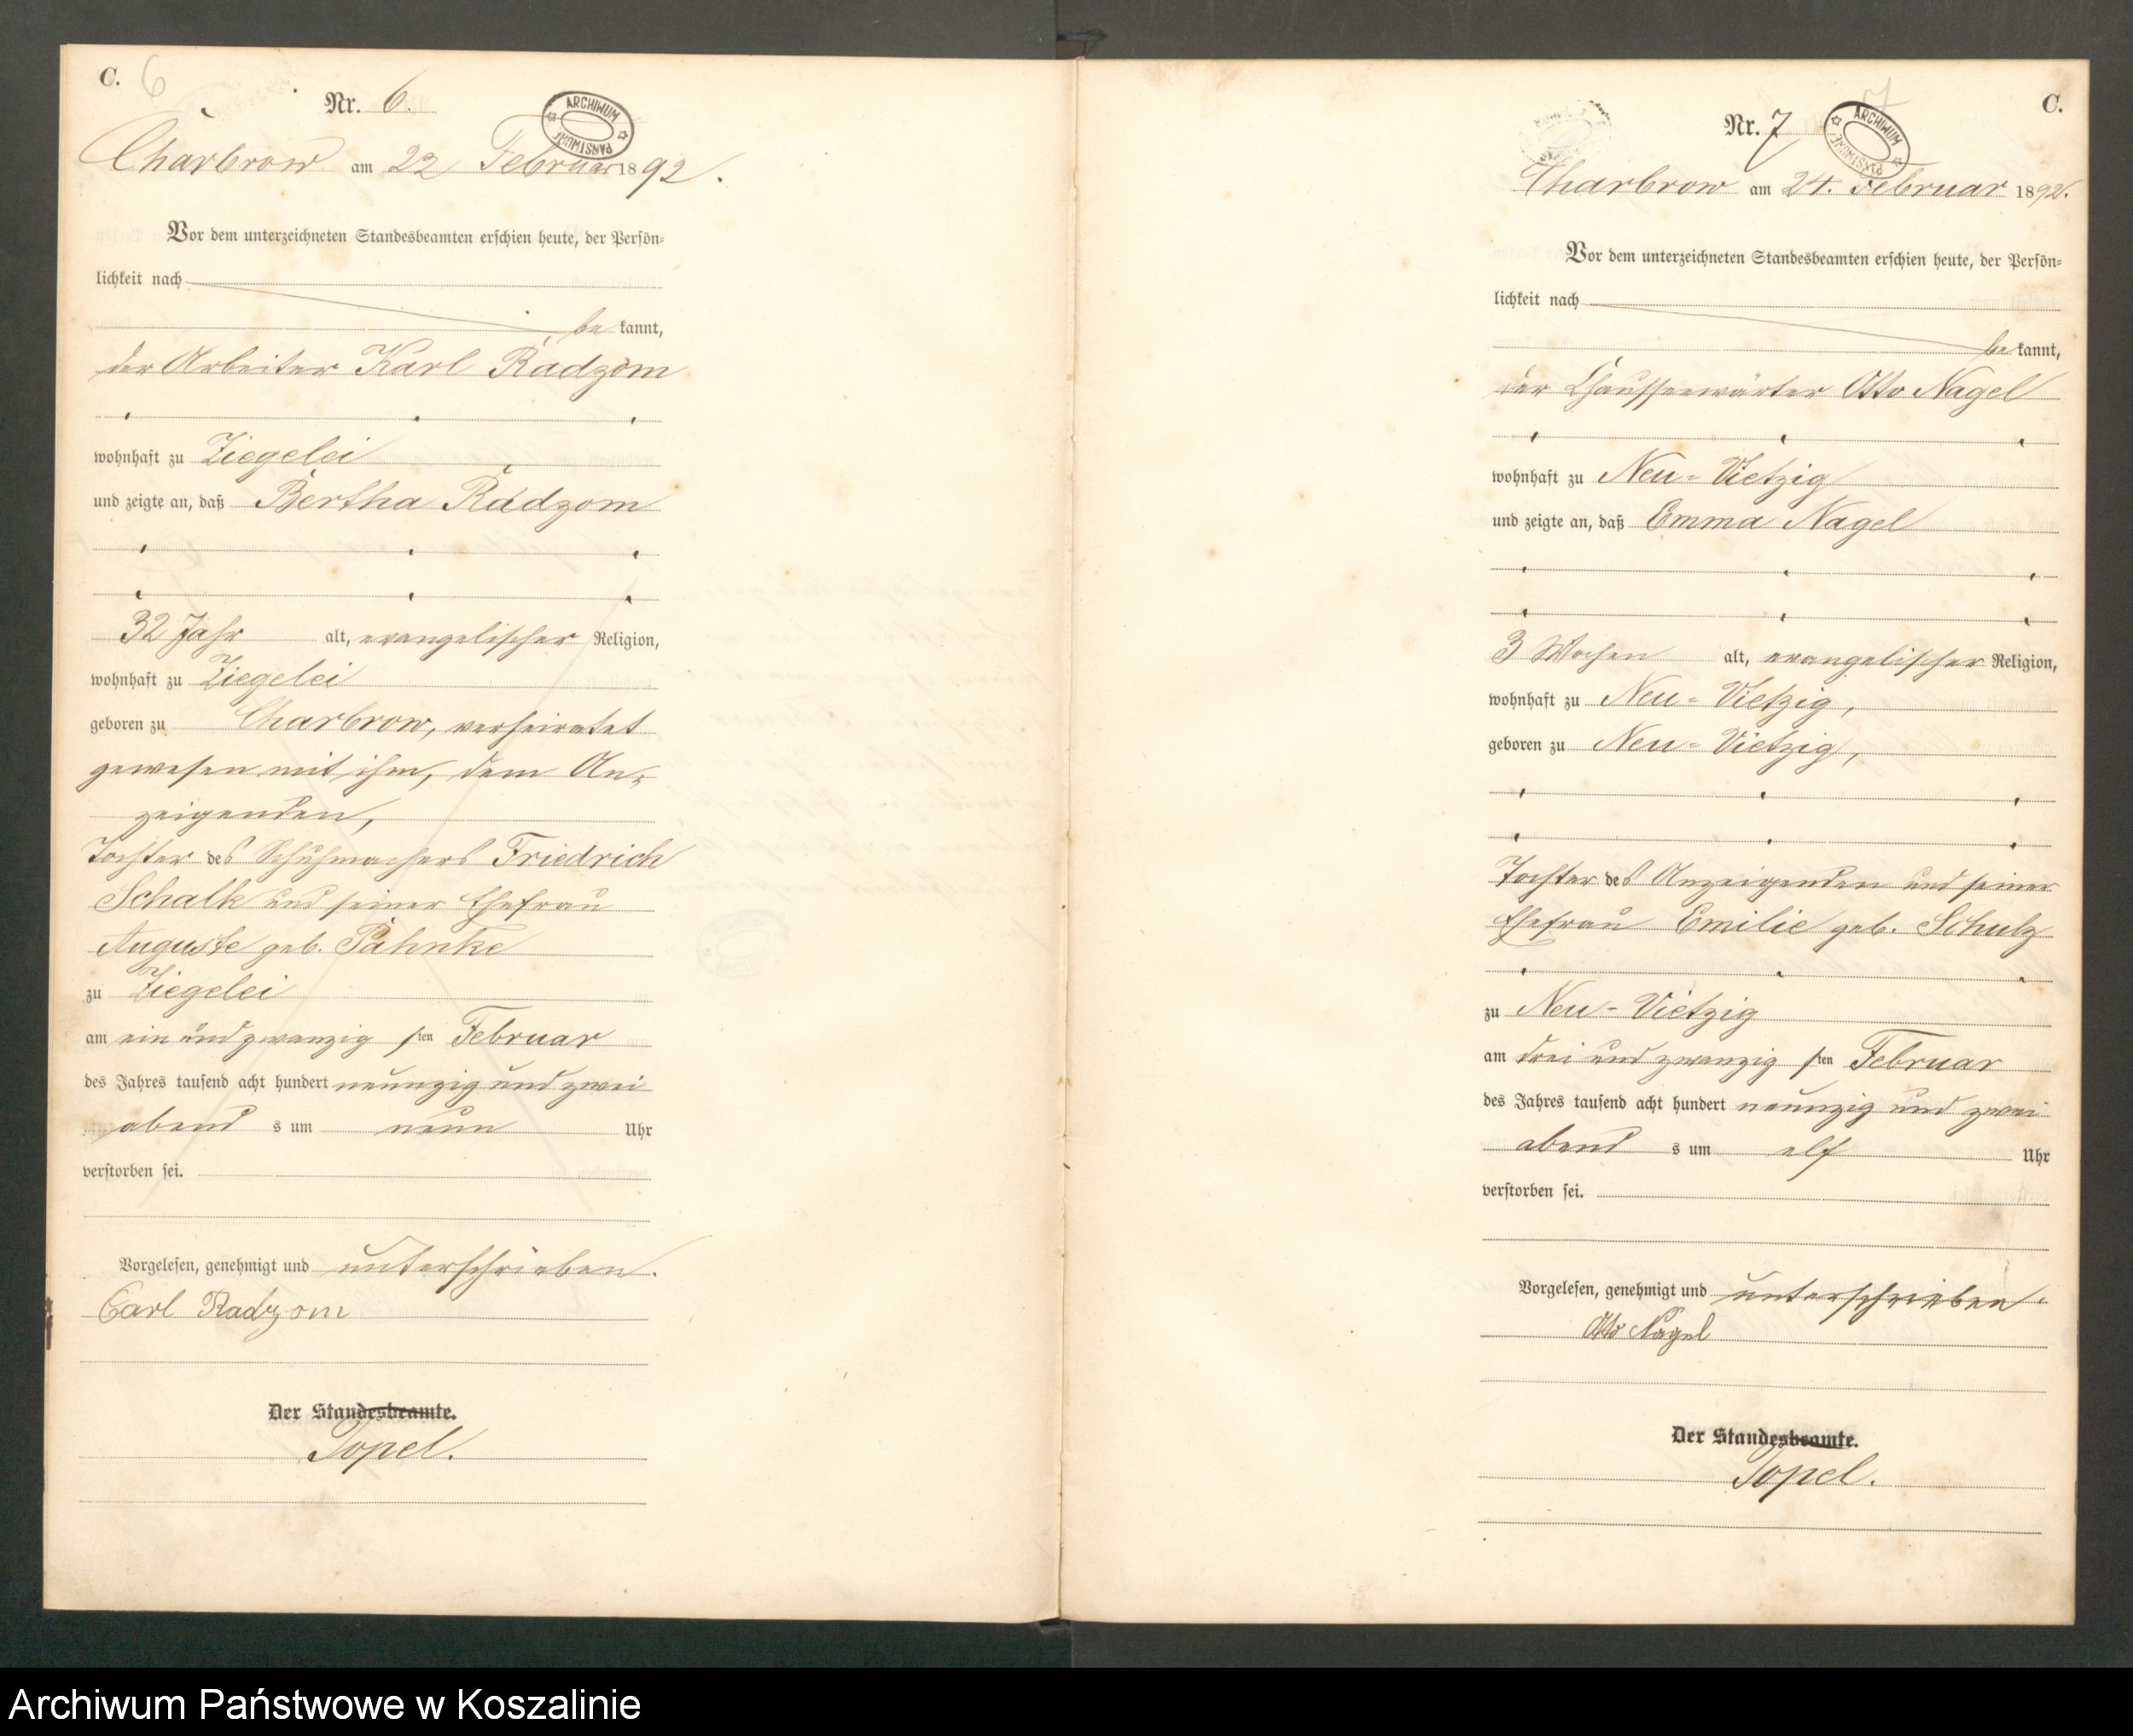 C. 6
Nr. 6.
ARCHIWUM PAŃSTWOWE
Charbrow am 22 Februar 1892.
Vor dem unterzeichneten Standesbeamten erschien heute, der Persön-
lichkeit nach
be kannt,
der Arbeiter Karl Radzom
wohnhaft zu Ziegelei
und zeigte an, daß Bertha Radzom
32 Jahr alt, evangelischer Religion,
wohnhaft zu Ziegelei
geboren zu Charbrow, verheiratet
gewesen mit ihm, dem An-
zeigenden,
Tochter des Schuhmachers Friedrich
Schalk und seiner Ehefrau
Auguste geb. Pahnke
zu Ziegelei
am ein und zwanzig sten Februar
des Jahres tausend acht hundert neunzig und zwei
abend s um neun Uhr
verstorben sei.
Vorgelesen, genehmigt und unterschrieben.
Carl Radzom
Der Standesbeamte.
Topel.
C.
7
Nr. 7
ARCHIWUM PAŃSTWOWE
Charbrow am 24. Februar 1892.
Vor dem unterzeichneten Standesbeamten erschien heute, der Persön-
lichkeit nach
be kannt,
der Chausseewärter Otto Nagel
wohnhaft zu Neu-Vietzig
und zeigte an, daß Emma Nagel
3 Wochen alt, evangelischer Religion,
wohnhaft zu Neu-Vietzig,
geboren zu Neu-Vietzig,
Tochter des Anzeigenden und seiner
Ehefrau Emilie geb. Schulz
zu Neu-Vietzig
am drei und zwanzig sten Februar
des Jahres tausend acht hundert neunzig und zwei
abend s um elf Uhr
verstorben sei.
Vorgelesen, genehmigt und unterschrieben.
Otto Nagel
Der Standesbeamte.
Topel.
Archiwum Państwowe w Koszalinie